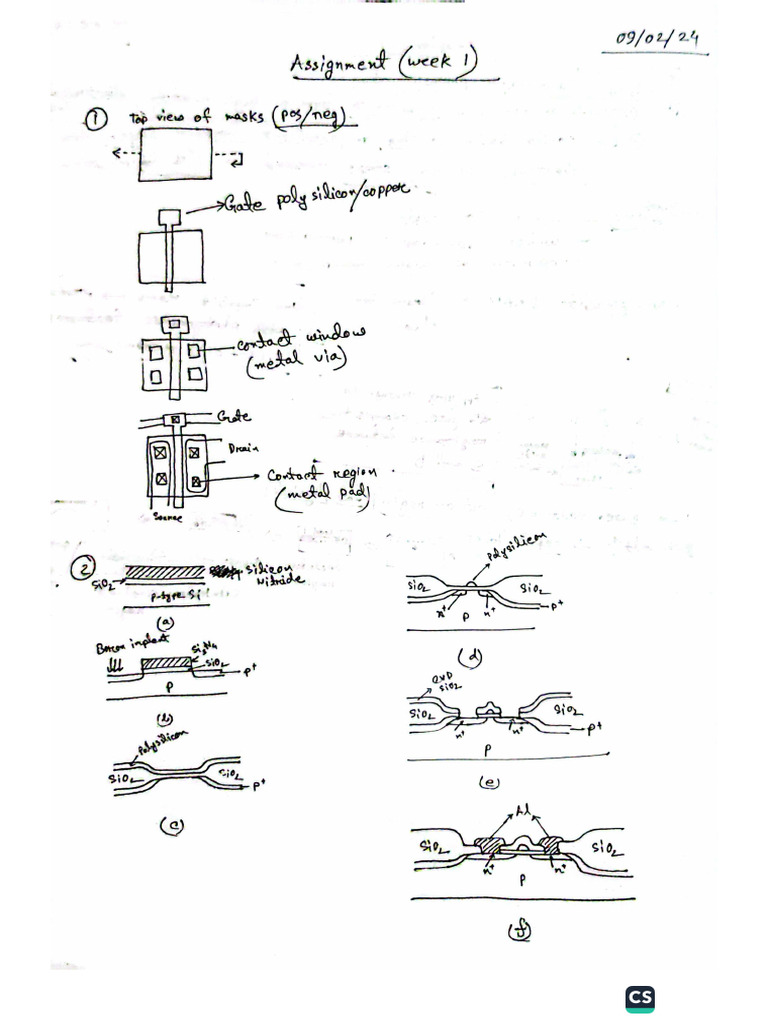 09/02/24
Assignment (week 1)
① Top view of masks (pos/neg)
Gate poly silicon/copper
contact window
(metal via)
Gate
Drain
Contact region
(metal pad)
Source
②
silicon
Nitride
SiO2
P-type Si
(a)
Boron implant
Si3N4
SiO2
P+
P
(b)
Polysilicon
SiO2
SiO2
P+
(c)
Polysilicon
SiO2
SiO2
n+
n+
P
P+
(d)
CVD
SiO2
SiO2
SiO2
n+
n+
P+
P
(e)
Al
SiO2
SiO2
n+
n+
P
(f)
CS